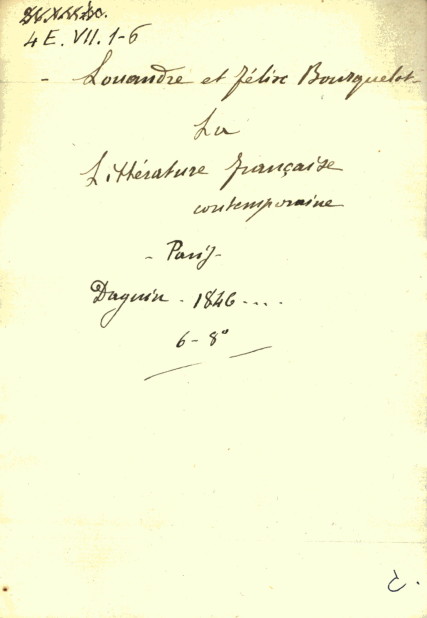 4 E. VII. 1-6
- Louandre et Félix Bourquelot -
La
Littérature française
contemporaine
- Paris -
Daguin - 1846 - ...
6 - 8°